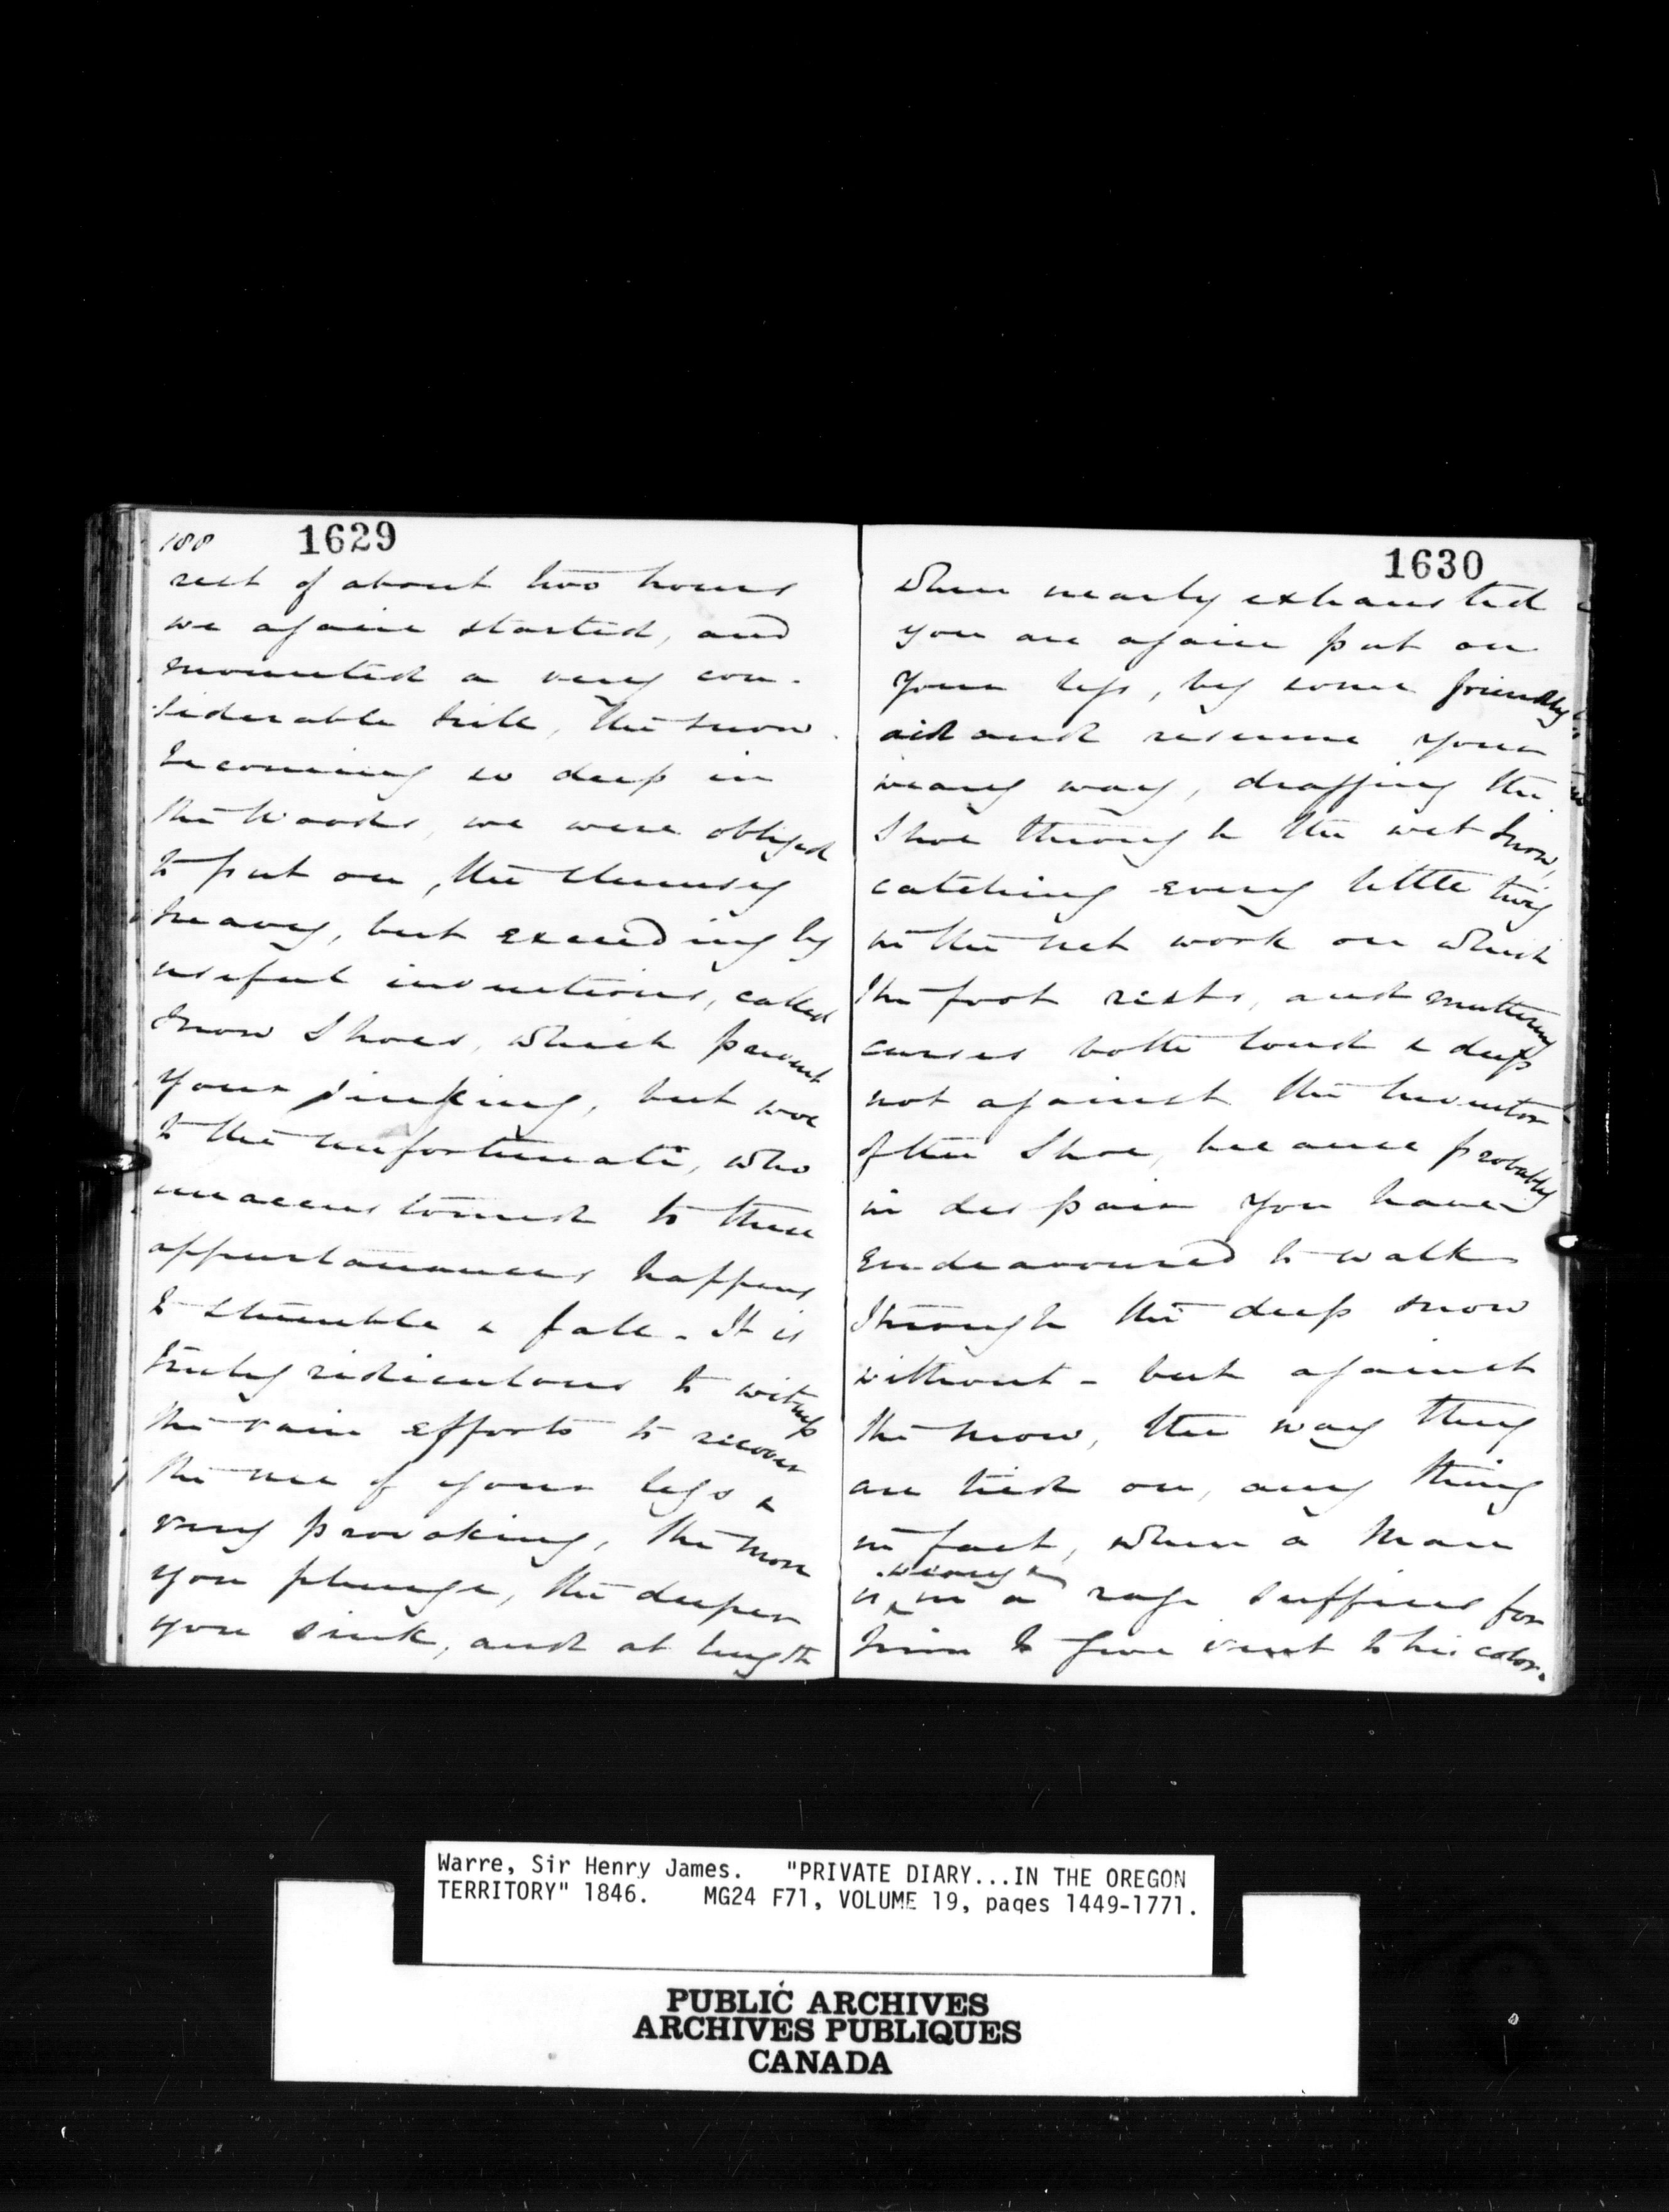 188 1629
rest of about two hours
we again started, and
mounted a very con-
siderable hill, the snow
becoming so deep in
the Woods, we were obliged
to put on, the clumsy
heavy, but exceedingly
useful inventions, called
Snow Shoes, which prevent
your sinking, but woe
to the unfortunate, who
unaccustomed to these
appurtenances happens
to stumble & fall - It is
truly ridiculous to witness
the vain efforts to recover
the use of your legs &
very provoking, the more
you plunge, the deeper
you sink, and at length
1630
when nearly exhausted
you are again put on
your legs, by some friendly
aid and resume your
weary way, dragging the
Shoe through the wet Snow,
catching every little twig
in the net work on which
the foot rests, and muttering
curses both loud & deep
not against the Inventor
of the Shoe, because probably
in despair you have
endeavoured to walk
through the deep snow
without - but against
the snow, the way they
are tied on, any thing
in fact, when a Man
weary &
is in a rage suffices for
him to give vent to his color.
Warre, Sir Henry James. "PRIVATE DIARY...IN THE OREGON
TERRITORY" 1846. MG24 F71, VOLUME 19, pages 1449-1771.
PUBLIC ARCHIVES
ARCHIVES PUBLIQUES
CANADA